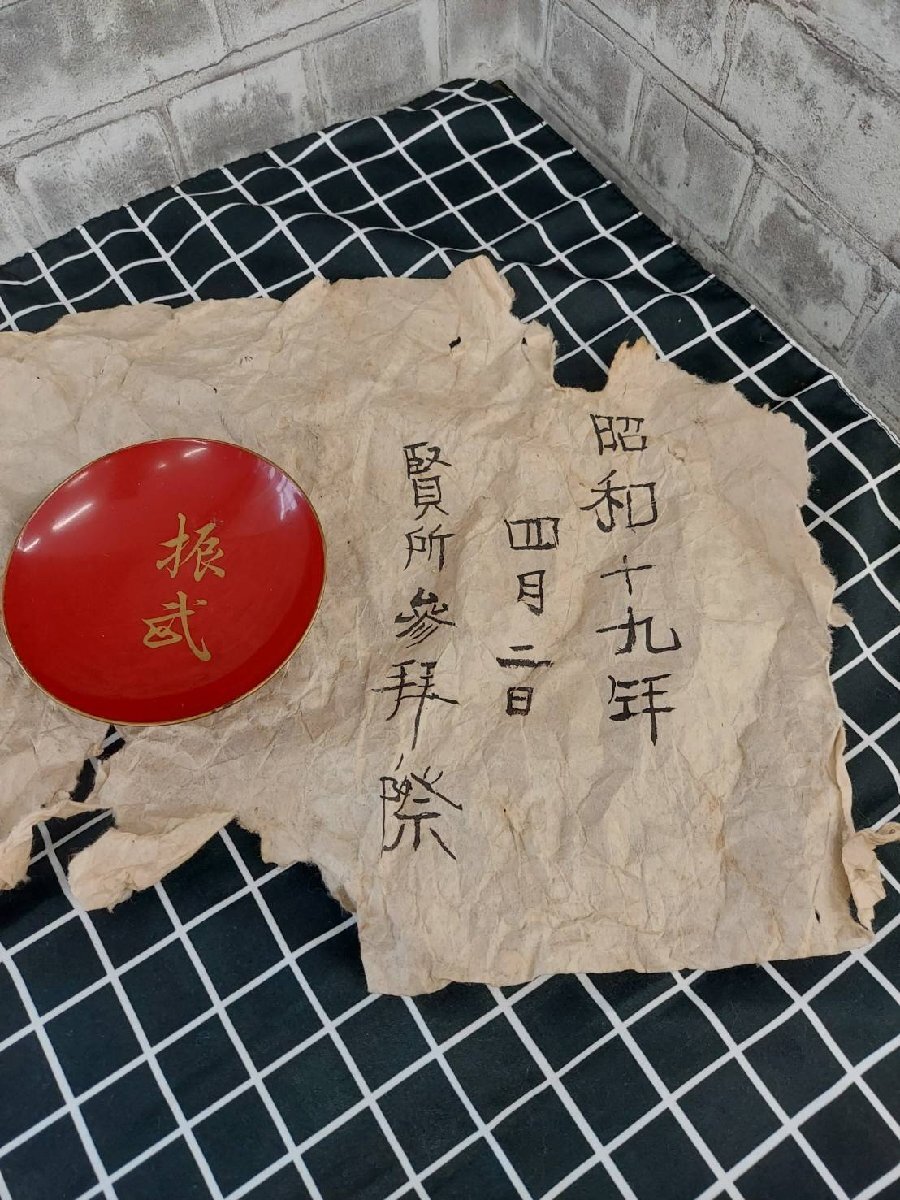 昭和十九年
四月二日
賢所參拜際
振武